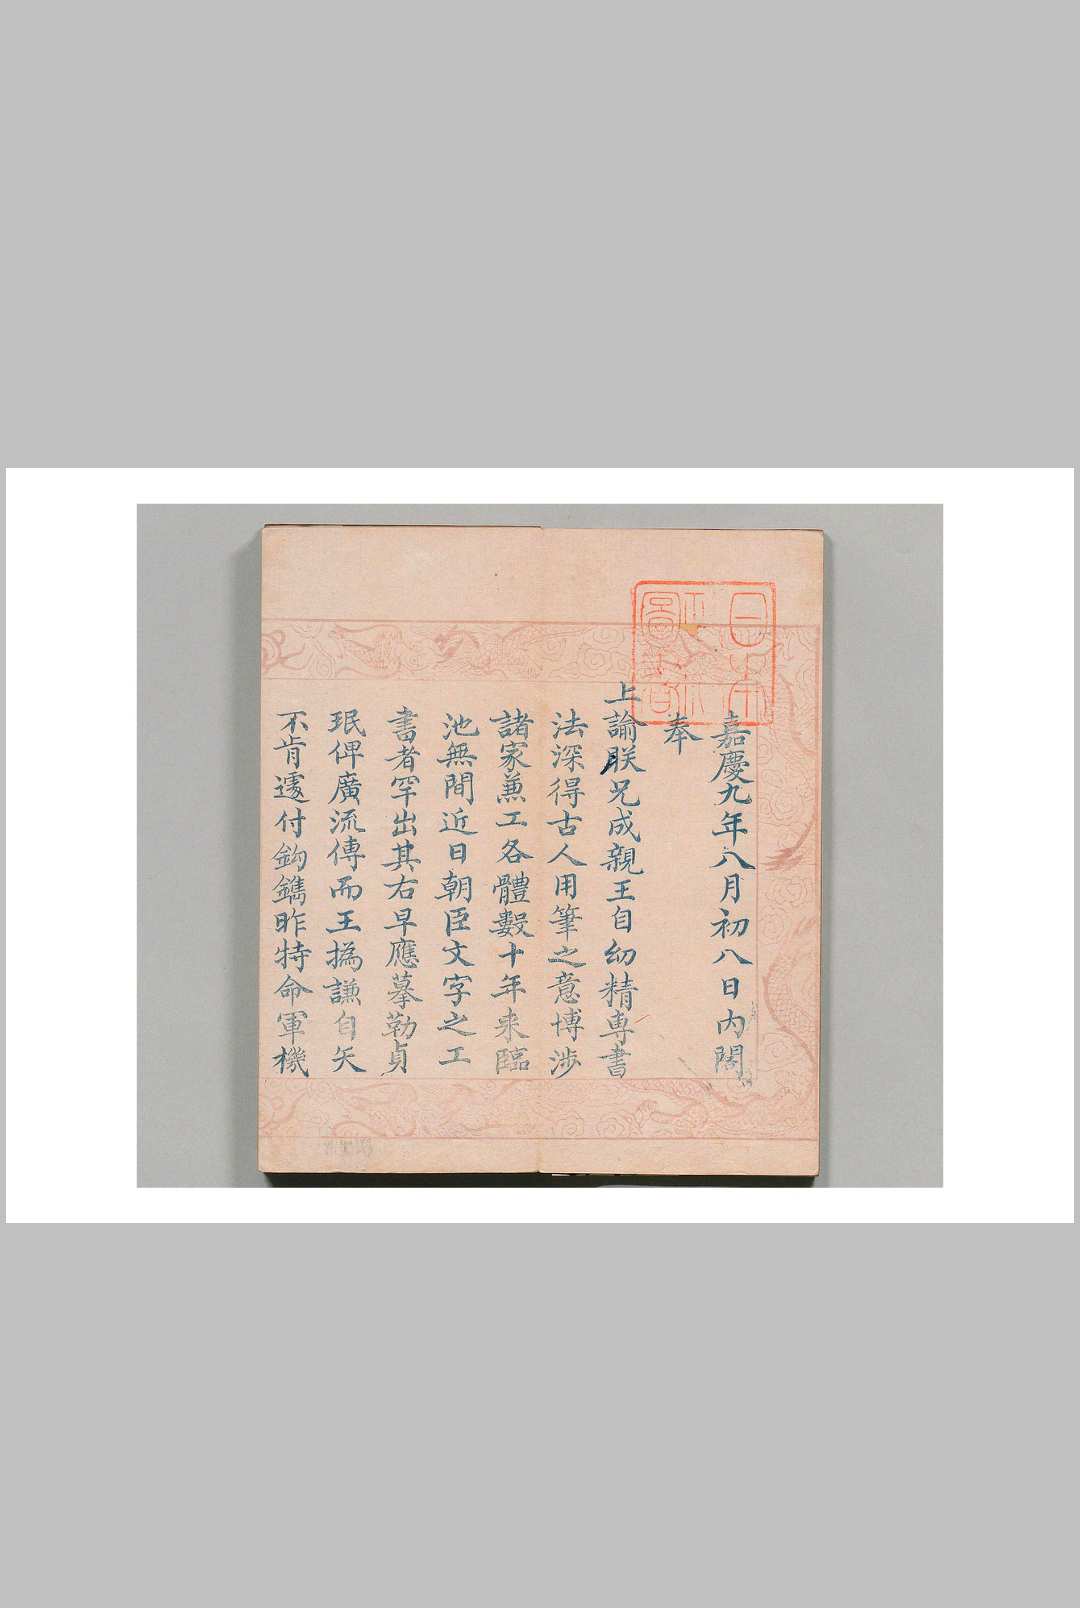 嘉慶九年八月初八日内閣
奉
上諭朕兄成親王自幼精専書
法深得古人用筆之意博涉
諸家兼工各體數十年来臨
池無間近日朝臣文字之工
書者罕出其右早應摹勒貞
珉俾廣流傳而王撝謙自矢
不肯遽付鈎鐫昨特命軍機